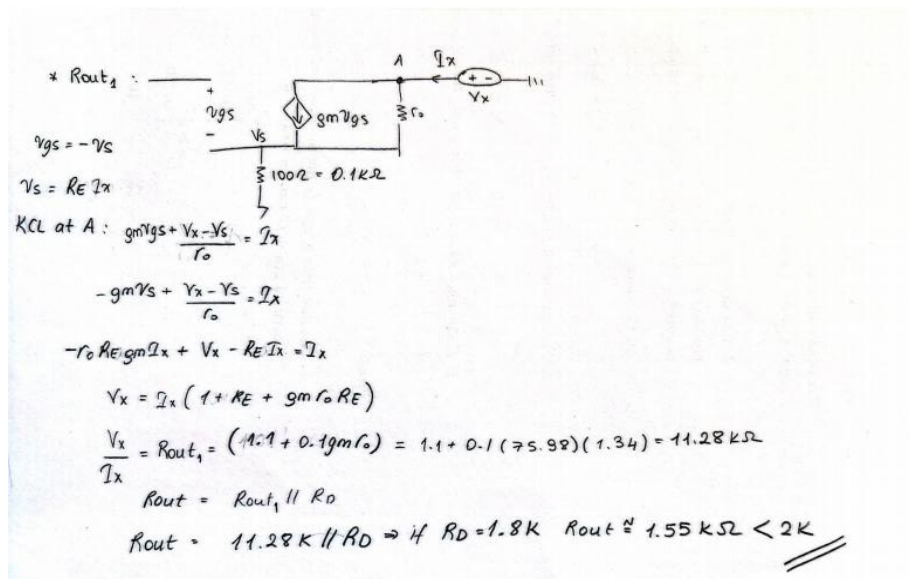 A Ix
* Rout1 :
+ -
Vx
+
vgs
-
gmvgs
ro
Vs
vgs = -vs
100Ω = 0.1KΩ
vs = RE Ix
KCL at A : gmvgs + (Vx-Vs)/ro = Ix
-gmVs + (Vx - Vs)/ro = Ix
-ro RE gm Ix + Vx - RE Ix = Ix
Vx = Ix ( 1 + RE + gm ro RE )
Vx/Ix = Rout1 = (1.1 + 0.1gmro) = 1.1 + 0.1 (75.98) (1.34) = 11.28 KΩ
Rout = Rout1 // RD
Rout = 11.28K // RD ⇒ if RD = 1.8K Rout ≅ 1.55 KΩ < 2K